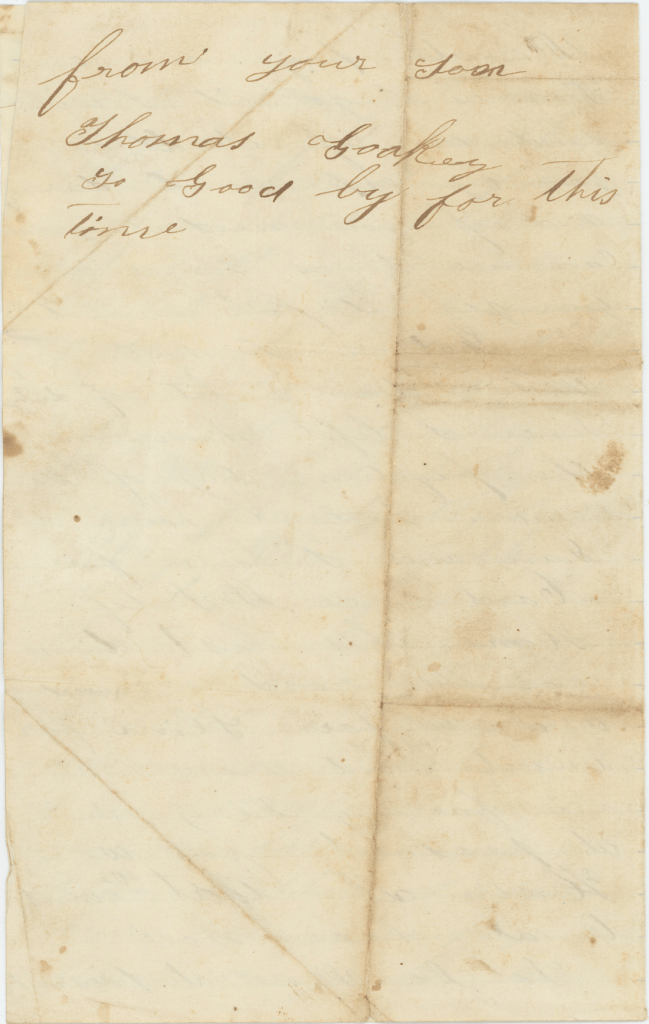 from your Soon
Thomas Goakey
So Good by for this
time